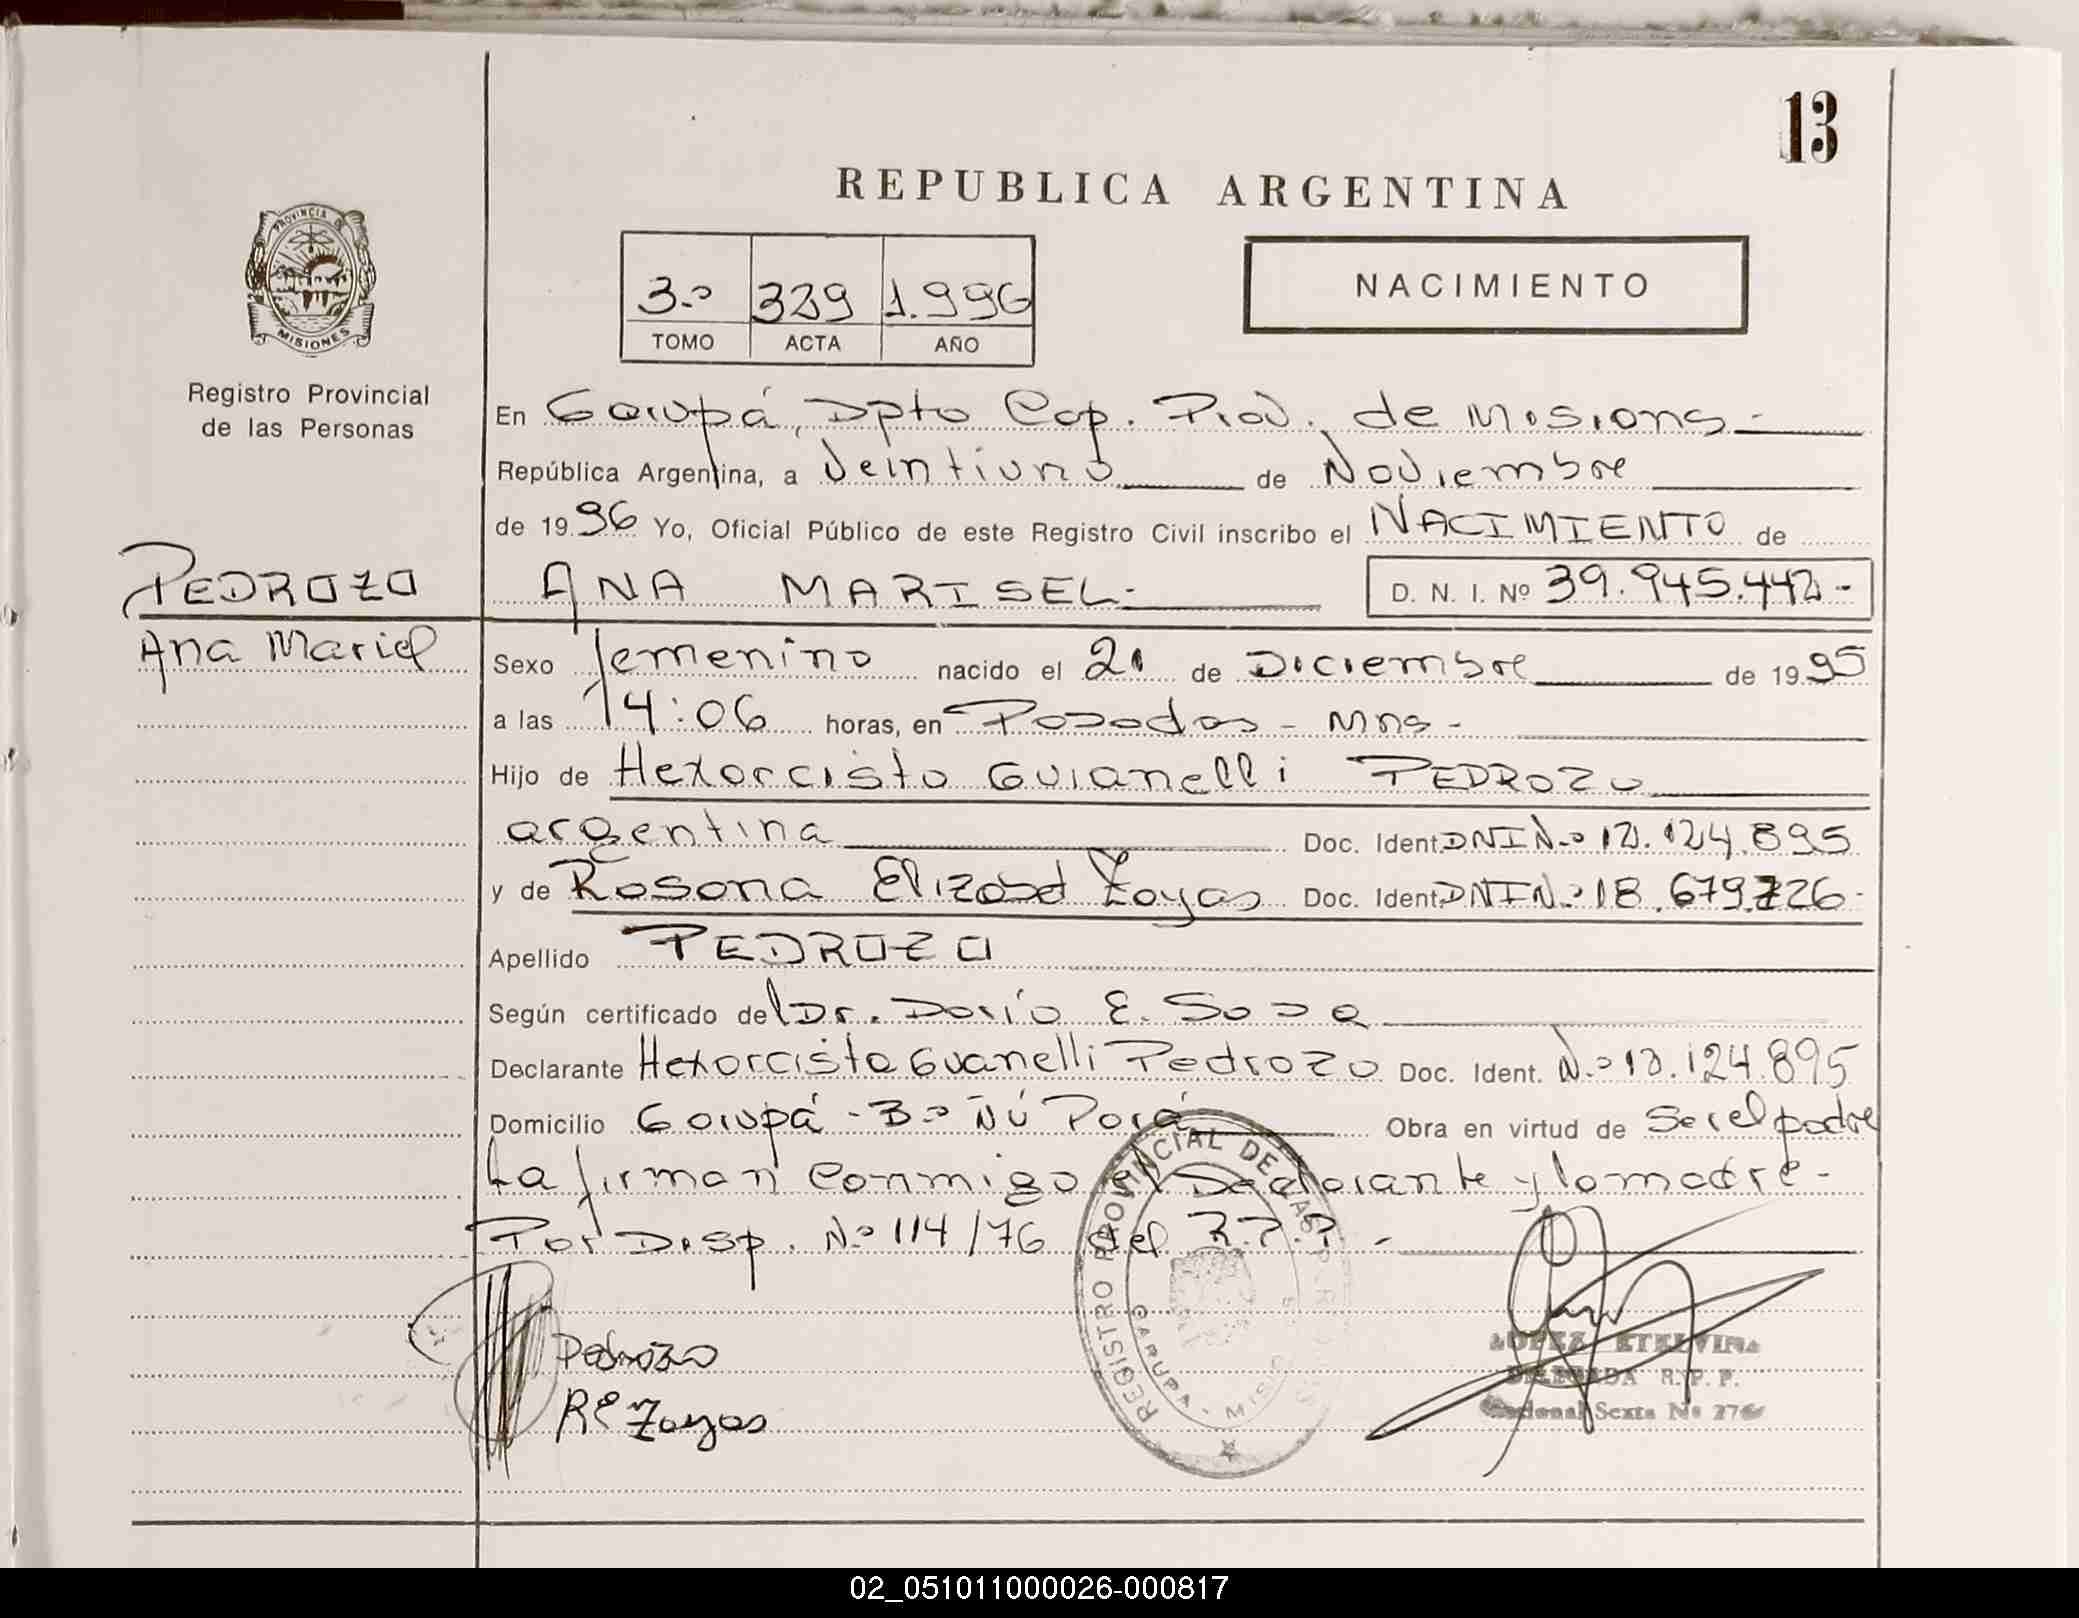 13
REPUBLICA ARGENTINA
PROVINCIA DE
MISIONES
Registro Provincial
de las Personas
3.º 339 1.996
TOMO ACTA AÑO
NACIMIENTO
En Garupá, Dpto Cap. Prov. de Misions.-
República Argentina, a Veintiuno de Noviembre
de 1996 Yo, Oficial Público de este Registro Civil inscribo el NACIMIENTO de
PEDROZO ANA MARISEL.- D. N. I. Nº 39.945.442-
Ana Mariel
Sexo femenino nacido el 21 de Diciembre de 1995
a las 14:06 horas, en Posadas - Mns-
Hijo de Hexorcisto Guianelli PEDROZO
argentina Doc. Ident. DNI N.º 12.124.895
y de Rosana Elizabet Zoyas Doc. Ident. DNI N.º 18.679.726-
Apellido PEDROZO
Según certificado del Dr. Darío E. Sosa
Declarante Hexorcisto Guanelli Pedrozo Doc. Ident. N.º 12.124.895
Domicilio Garupá - Bº Ñú Porá Obra en virtud de Ser el padre
La firman conmigo el Declarante y la madre-
Por Disp. N.º 114/76 del R.P.P. -
REGISTRO PROVINCIAL DE LAS PER
GARUPA - MISIO
Pedrozo
RE Zoyas
LOPEZ ETELVINA
DELEGADA R. P. P.
Sexta Nº 276
02_051011000026-000817